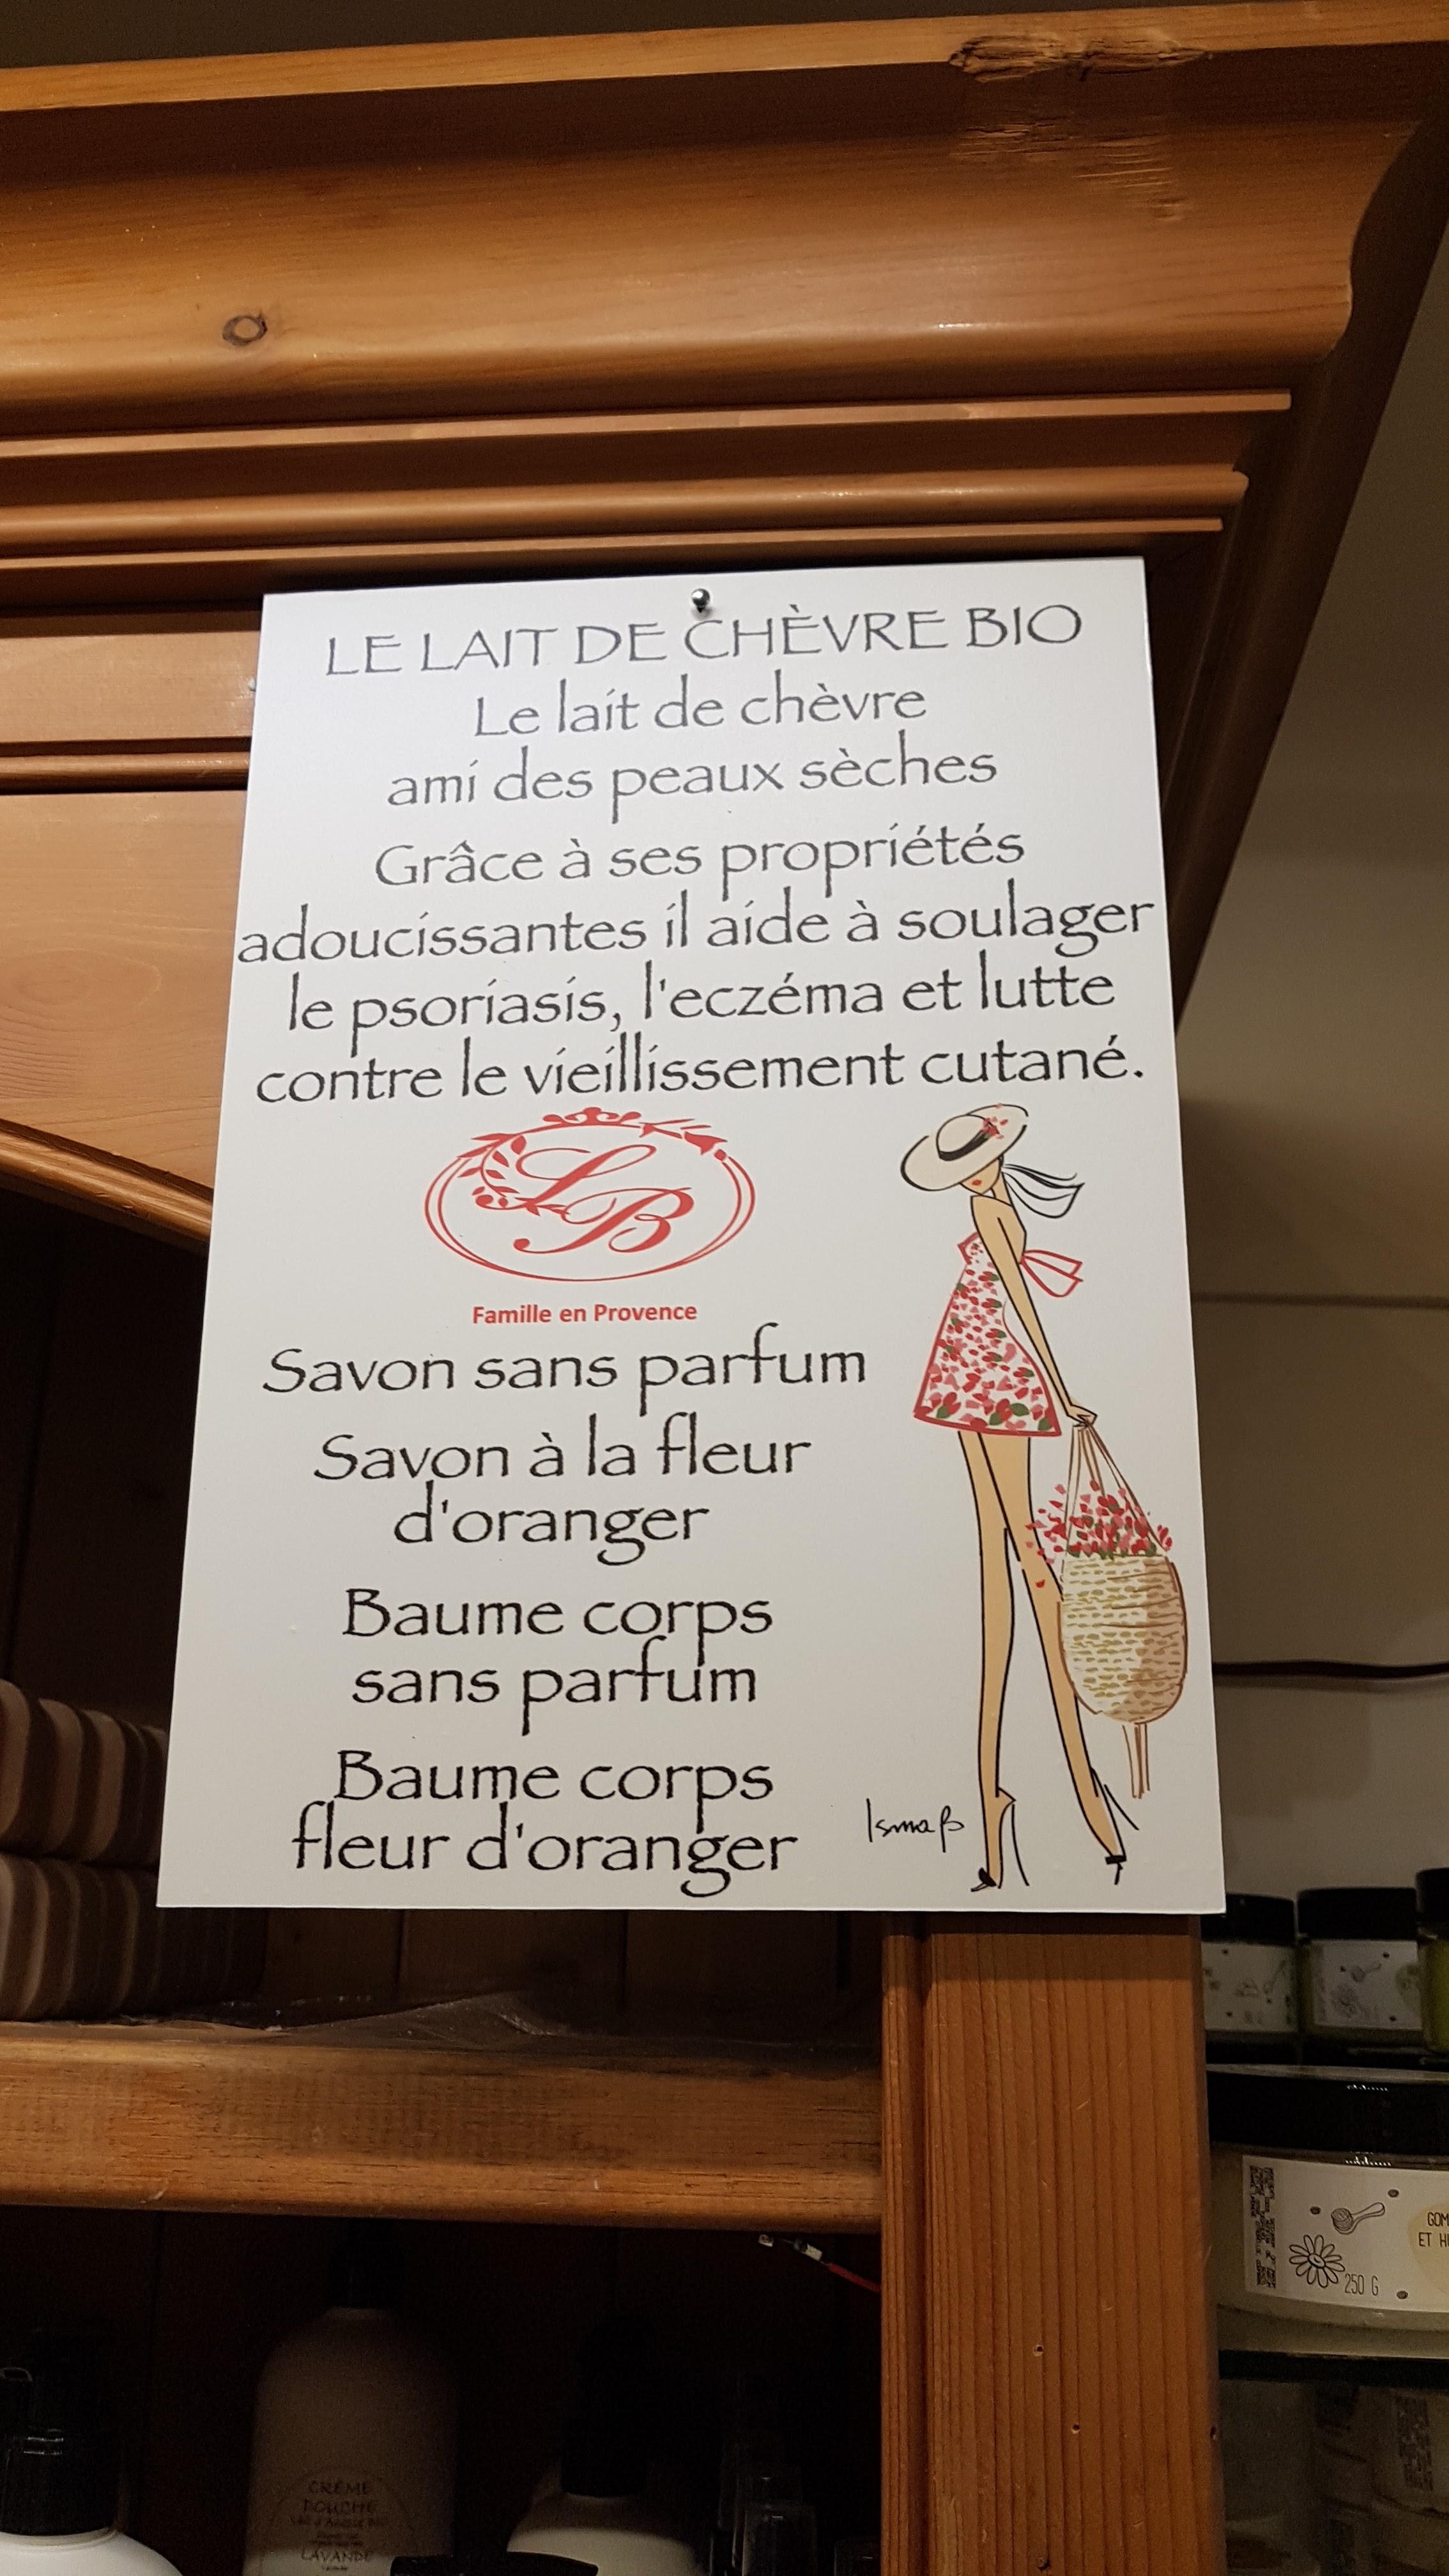 LE LAIT DE CHÈVRE BIO
Le lait de chèvre
ami des peaux sèches
Grâce à ses propriétés
adoucissantes il aide à soulager
le psoriasis, l'eczéma et lutte
contre le vieillissement cutané.
LB
Famille en Provence
Savon sans parfum
Savon à la fleur
d'oranger
Baume corps
sans parfum
Baume corps
fleur d'oranger
IsmaB
GOM
ET H
250 G
CRÈME
DOUCHE
LAVANDE